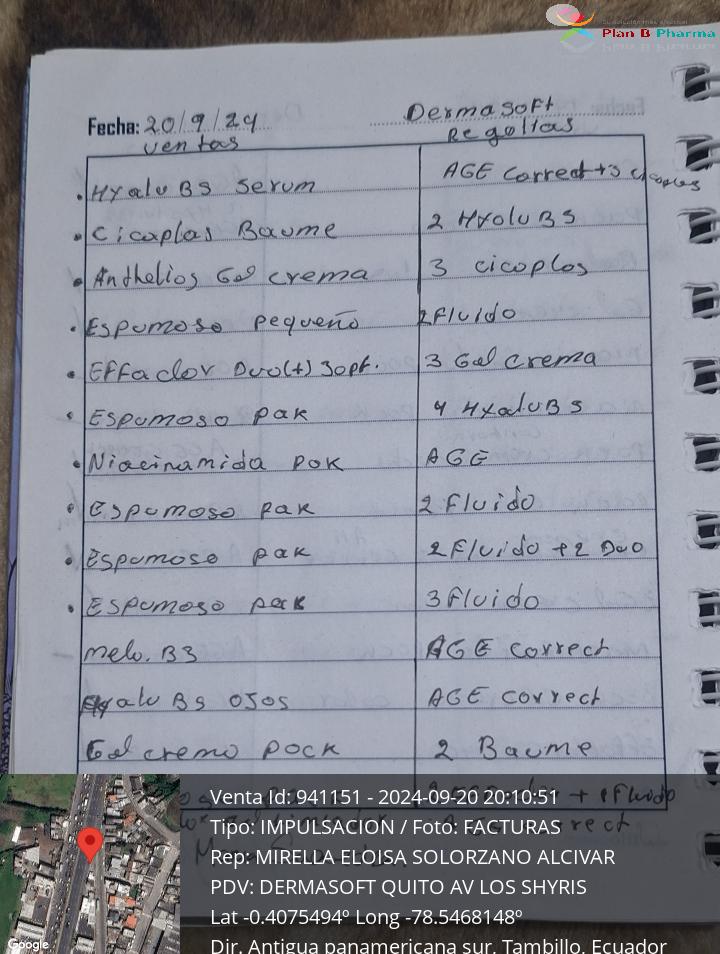 Plan B Pharma
Fecha: 20/9/24 DermaSoft
ventas Regalias
Hyalu B5 Serum AGE Correct + 3 cicaplas
Cicaplas Baume 2 Hyalu B5
Anthelios Gel crema 3 cicaplas
Espumoso pequeño 2 Fluido
Effaclor Duo(+) 30pt. 3 Gel crema
Espumoso pak 4 Hyalu B5
Niacinamida pak AGE
Espumoso pak 2 Fluido
Espumoso pak 2 Fluido + 2 Duo
Espumoso pak 3 Fluido
Mela. B3 AGE correct
Hyalu B5 ojos AGE correct
Gel crema pack 2 Baume
+ 1 Fluido
Venta Id: 941151 - 2024-09-20 20:10:51
Tipo: IMPULSACION / Foto: FACTURAS
Rep: MIRELLA ELOISA SOLORZANO ALCIVAR
PDV: DERMASOFT QUITO AV LOS SHYRIS
Lat -0.4075494º Long -78.5468148º
Dir. Antigua panamericana sur, Tambillo, Ecuador
Google